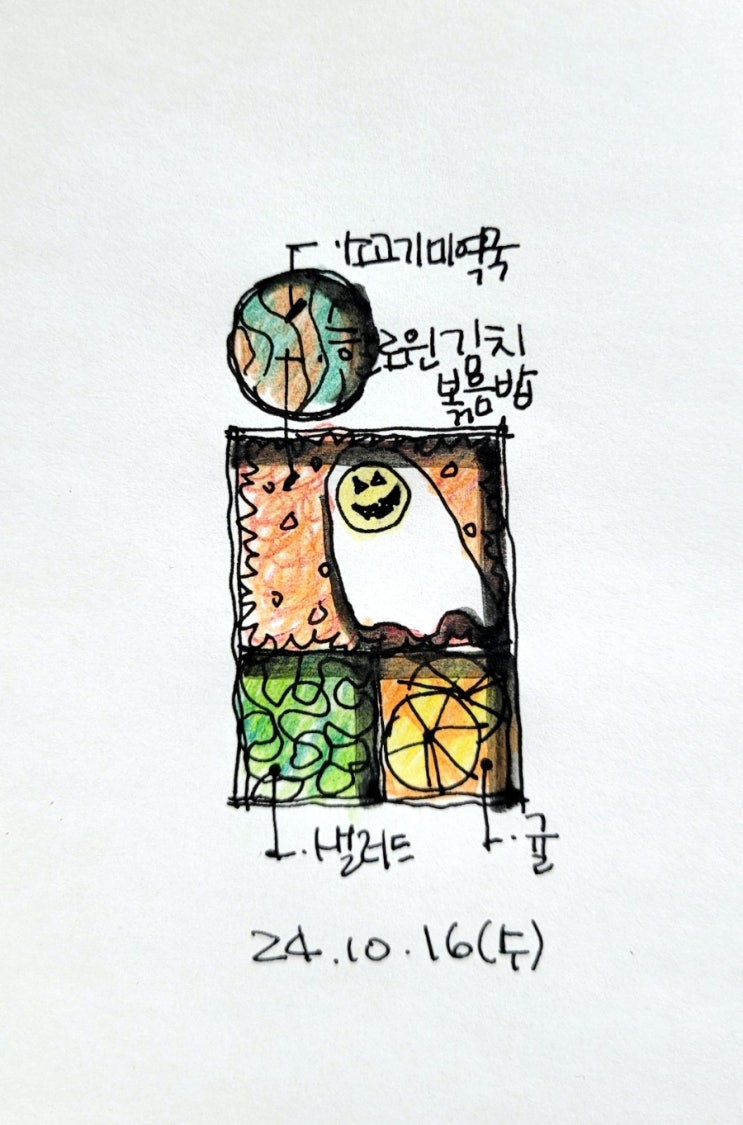 소고기미역국
할로윈김치
볶음밥
샐러드
귤
24.10.16(수)